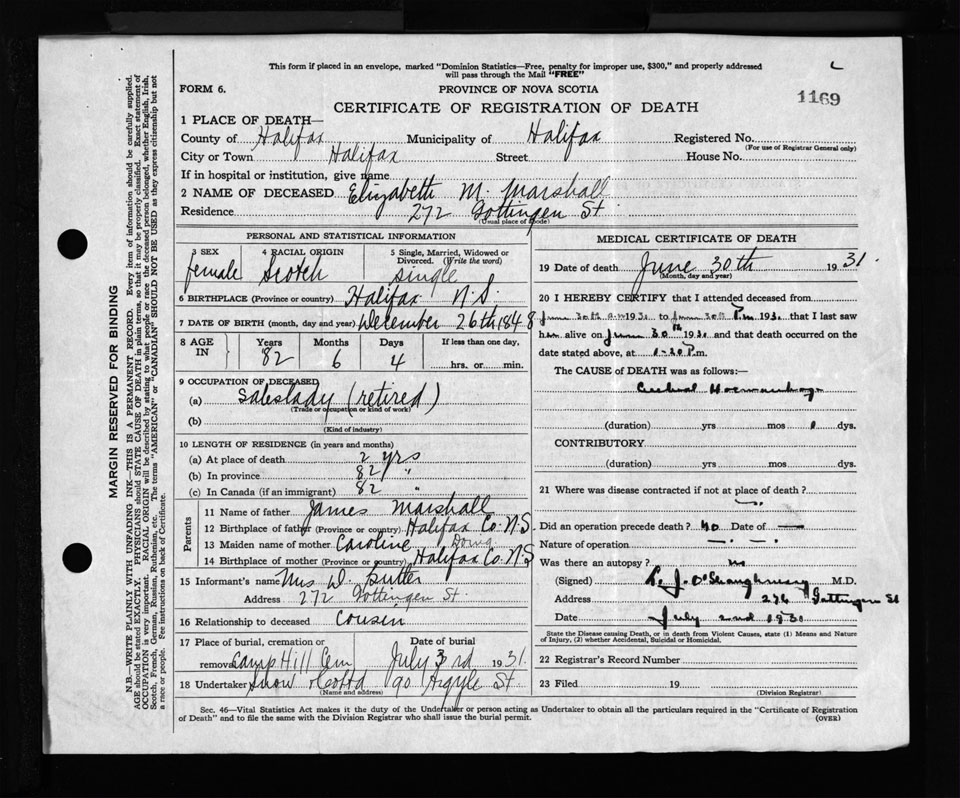 This form if placed in an envelope, marked "Dominion Statistics—Free, penalty for improper use, $300," and properly addressed
will pass through the Mail "FREE"
FORM 6.
PROVINCE OF NOVA SCOTIA
1169
CERTIFICATE OF REGISTRATION OF DEATH
1 PLACE OF DEATH—
County of Halifax Municipality of Halifax Registered No.
(For use of Registrar General only)
City or Town Halifax Street House No.
If in hospital or institution, give name
2 NAME OF DECEASED Elizabeth M. Marshall
Residence 272 Gottingen St.
(Usual place of abode)
PERSONAL AND STATISTICAL INFORMATION
3 SEX 4 RACIAL ORIGIN 5 Single, Married, Widowed or
Divorced. (Write the word)
female Scotch single
6 BIRTHPLACE (Province or country) Halifax N.S.
7 DATE OF BIRTH (month, day and year) December 26th 1848
8 AGE IN Years Months Days If less than one day.
82 6 4 hrs. or min.
9 OCCUPATION OF DECEASED
(a) Saleslady (retired)
(Trade or occupation or kind of work)
(b)
(Kind of industry)
10 LENGTH OF RESIDENCE (in years and months)
(a) At place of death 2 yrs
(b) In province 82 "
(c) In Canada (if an immigrant) 82 "
Parents
11 Name of father James Marshall
12 Birthplace of father (Province or country) Halifax Co. N.S
13 Maiden name of mother Caroline
14 Birthplace of mother (Province or country) Halifax Co. N.S
15 Informant's name Mrs D.
Address 272 Gottingen St.
16 Relationship to deceased Cousin
17 Place of burial, cremation or Date of burial
removal Camp Hill Cem July 3rd 1931.
18 Undertaker Snow & Co Ltd 90 Argyle St.
(Name and address)
MEDICAL CERTIFICATE OF DEATH
19 Date of death June 30th 1931.
(Month, day and year)
20 I HEREBY CERTIFY that I attended deceased from
June 30th a.m 1930 to June 30th P.m 1930 that I last saw
her alive on June 30th 1930 and that death occurred on
date stated above, at P.m.
The CAUSE of DEATH was as follows:—
Cerebral Haemorrhage
(duration) yrs mos dys.
CONTRIBUTORY
(duration) yrs. mos. dys.
21 Where was disease contracted if not at place of death?
Did an operation precede death? No Date of —
Nature of operation —
Was there an autopsy? no
(Signed) J. O'Shaughnessy M.D.
Address 276 Gottingen St
Date July 2nd 1930
State the Disease causing Death, or in death from Violent Causes, state (1) Means and Nature
of Injury, (2) whether Accidental, Suicidal or Homicidal.
22 Registrar's Record Number
23 Filed 19
(Division Registrar)
Sec. 46—Vital Statistics Act makes it the duty of the Undertaker or person acting as Undertaker to obtain all the particulars required in the "Certificate of Registration
of Death" and to file the same with the Division Registrar who shall issue the burial permit.
(OVER)
MARGIN RESERVED FOR BINDING
N.B.—WRITE PLAINLY WITH UNFADING INK—THIS IS A PERMANENT RECORD. Every item of information should be carefully supplied.
AGE should be stated EXACTLY. PHYSICIANS should STATE CAUSE OF DEATH in plain terms, so that it may be properly classified. Exact statement of
OCCUPATION is very important. RACIAL ORIGIN will be described by stating to what people or race the deceased person belonged, whether English, Irish,
Scotch, French, German, Russian, Ruthenian, etc. The terms "AMERICAN" or "CANADIAN" SHOULD NOT BE USED as they express citizenship but not
a race or people. Fee instructions on back of Certificate.